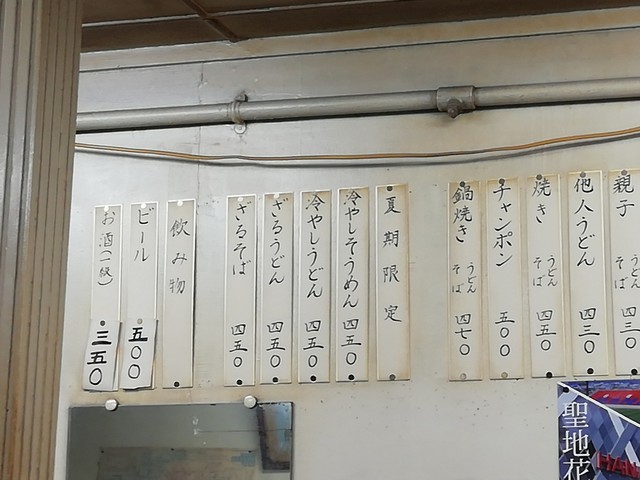 親子 うどん そば 四三〇
他人うどん 四三〇
焼き うどん そば 四五〇
チャンポン 五〇〇
鍋焼き うどん そば 四七〇
夏期限定
冷やしそうめん 四五〇
冷やしうどん 四五〇
ざるうどん 四五〇
ざるそば 四五〇
飲み物
ビール 五〇〇
お酒(一級) 三五〇
聖地花
HAN